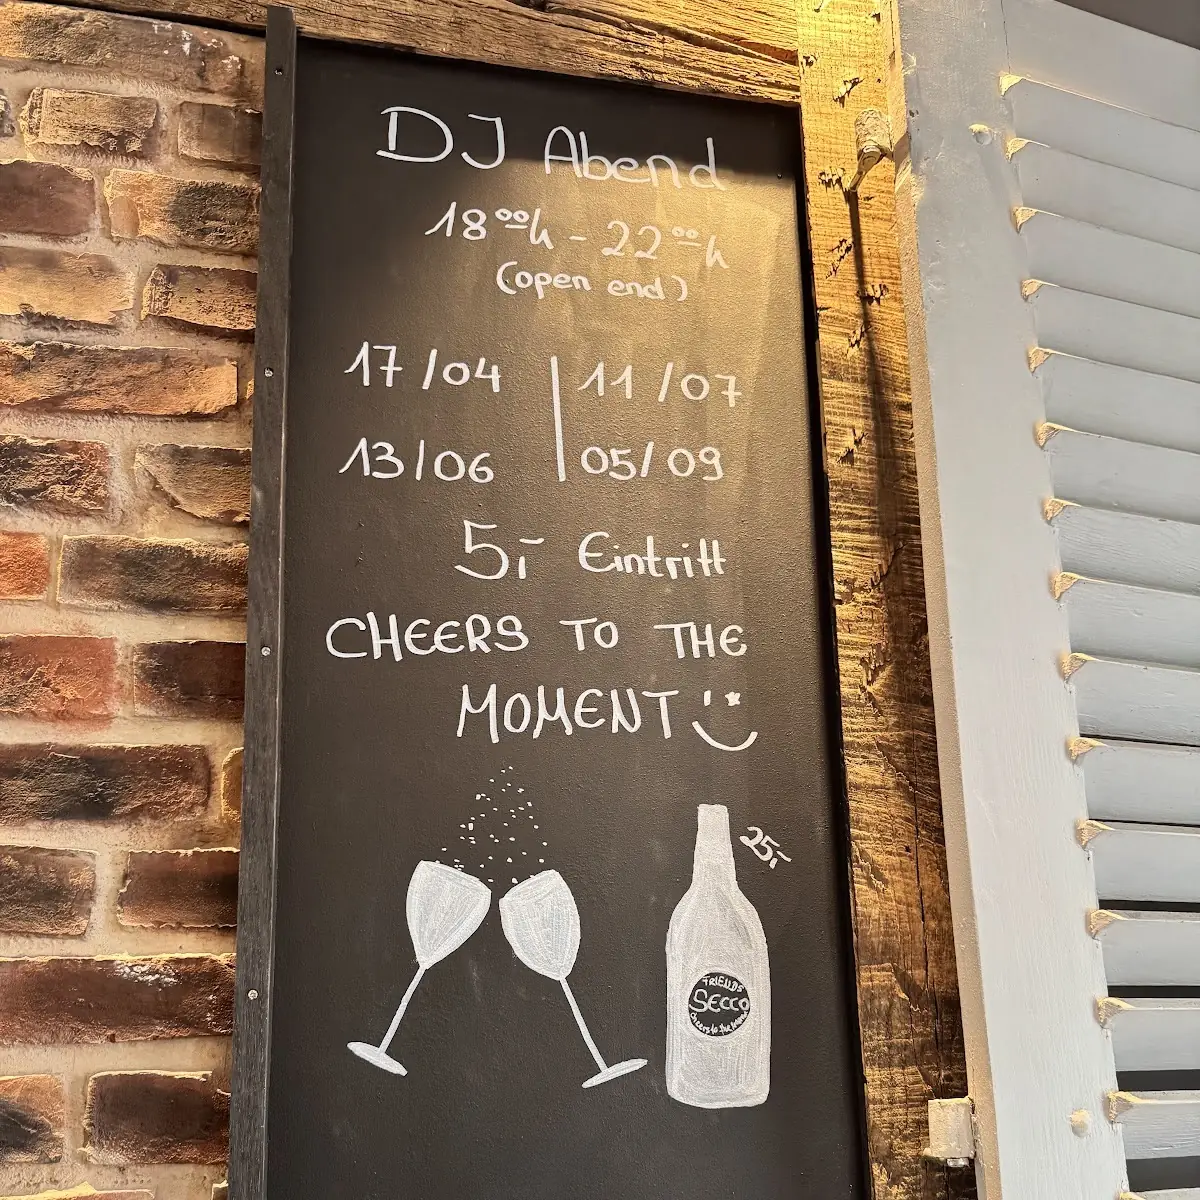 DJ Abend
18⁰⁰h - 22⁰⁰h
(open end)
17/04 | 11/07
13/06 | 05/09
5,- Eintritt
CHEERS TO THE
MOMENT
25,-
FRIENDS
SECCO
cheers to the moment